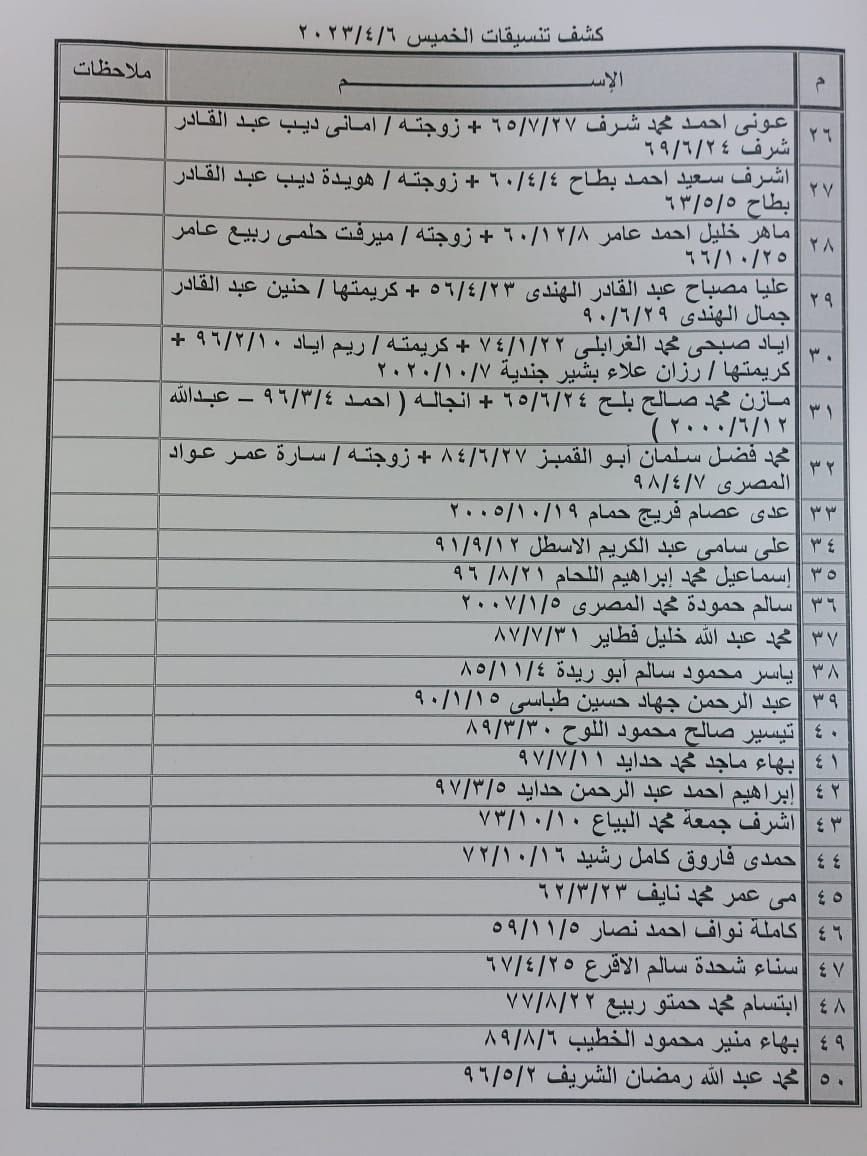 كشف تنسيقات الخميس ٢٠٢٣/٤/٦
م الإســـــــــــم ملاحظات
٢٦ عونى احمد محمد شرف ٦٥/٧/٢٧ + زوجته / امانى ديب عبد القادر
شرف ٦٩/٦/٢٤
٢٧ اشرف سعيد احمد بطاح ٦٠/٤/٤ + زوجته / هويدة ديب عبد القادر
بطاح ٦٣/٥/٥
٢٨ ماهر خليل احمد عامر ٦٠/١٢/٨ + زوجته / ميرفت حلمى ربيع عامر
٦٦/١٠/٢٥
٢٩ عليا مصباح عبد القادر الهندى ٥٦/٤/٢٣ + كريمتها / حنين عبد القادر
جمال الهندى ٩٠/٦/٢٩
٣٠ اياد صبحى محمد الغرابلى ٧٤/١/٢٢ + كريمته / ريم اياد ٩٦/٢/١٠ +
كريمتها / رزان علاء بشير جندية ٢٠٢٠/١٠/٧
٣١ مازن محمد صالح بلح ٦٥/٦/٢٤ + انجاله ( احمد ٩٦/٣/٤ – عبدالله
٢٠٠٠/٦/١٢ )
٣٢ محمد فضل سلمان أبو القمبز ٨٤/٦/٢٧ + زوجته / سارة عمر عواد
المصرى ٩٨/٤/٧
٣٣ عدى عصام فريج حمام ٢٠٠٥/١٠/١٩
٣٤ على سامى عبد الكريم الاسطل ٩١/٩/١٢
٣٥ إسماعيل محمد إبراهيم اللحام ٩٦/٨/٢١
٣٦ سالم حمودة محمد المصرى ٢٠٠٧/١/٥
٣٧ محمد عبد الله خليل فطاير ٨٧/٧/٣١
٣٨ ياسر محمود سالم أبو ريدة ٨٥/١١/٤
٣٩ عبد الرحمن جهاد حسين طباسى ٩٠/١/١٥
٤٠ تيسير صالح محمود اللوح ٨٩/٣/٣٠
٤١ بهاء ماجد محمد حدايد ٩٧/٧/١١
٤٢ إبراهيم احمد عبد الرحمن حدايد ٩٧/٣/٥
٤٣ اشرف جمعة محمد البياع ٧٣/١٠/١٠
٤٤ حمدى فاروق كامل رشيد ٧٢/١٠/١٦
٤٥ مى عمر محمد نايف ٦٢/٣/٢٣
٤٦ كاملة نواف احمد نصار ٥٩/١١/٥
٤٧ سناء شحدة سالم الاقرع ٦٧/٤/٢٥
٤٨ ابتسام محمد حمتو ربيع ٧٧/٨/٢٢
٤٩ بهاء منير محمود الخطيب ٨٩/٨/٦
٥٠ محمد عبد الله رمضان الشريف ٩٦/٥/٢